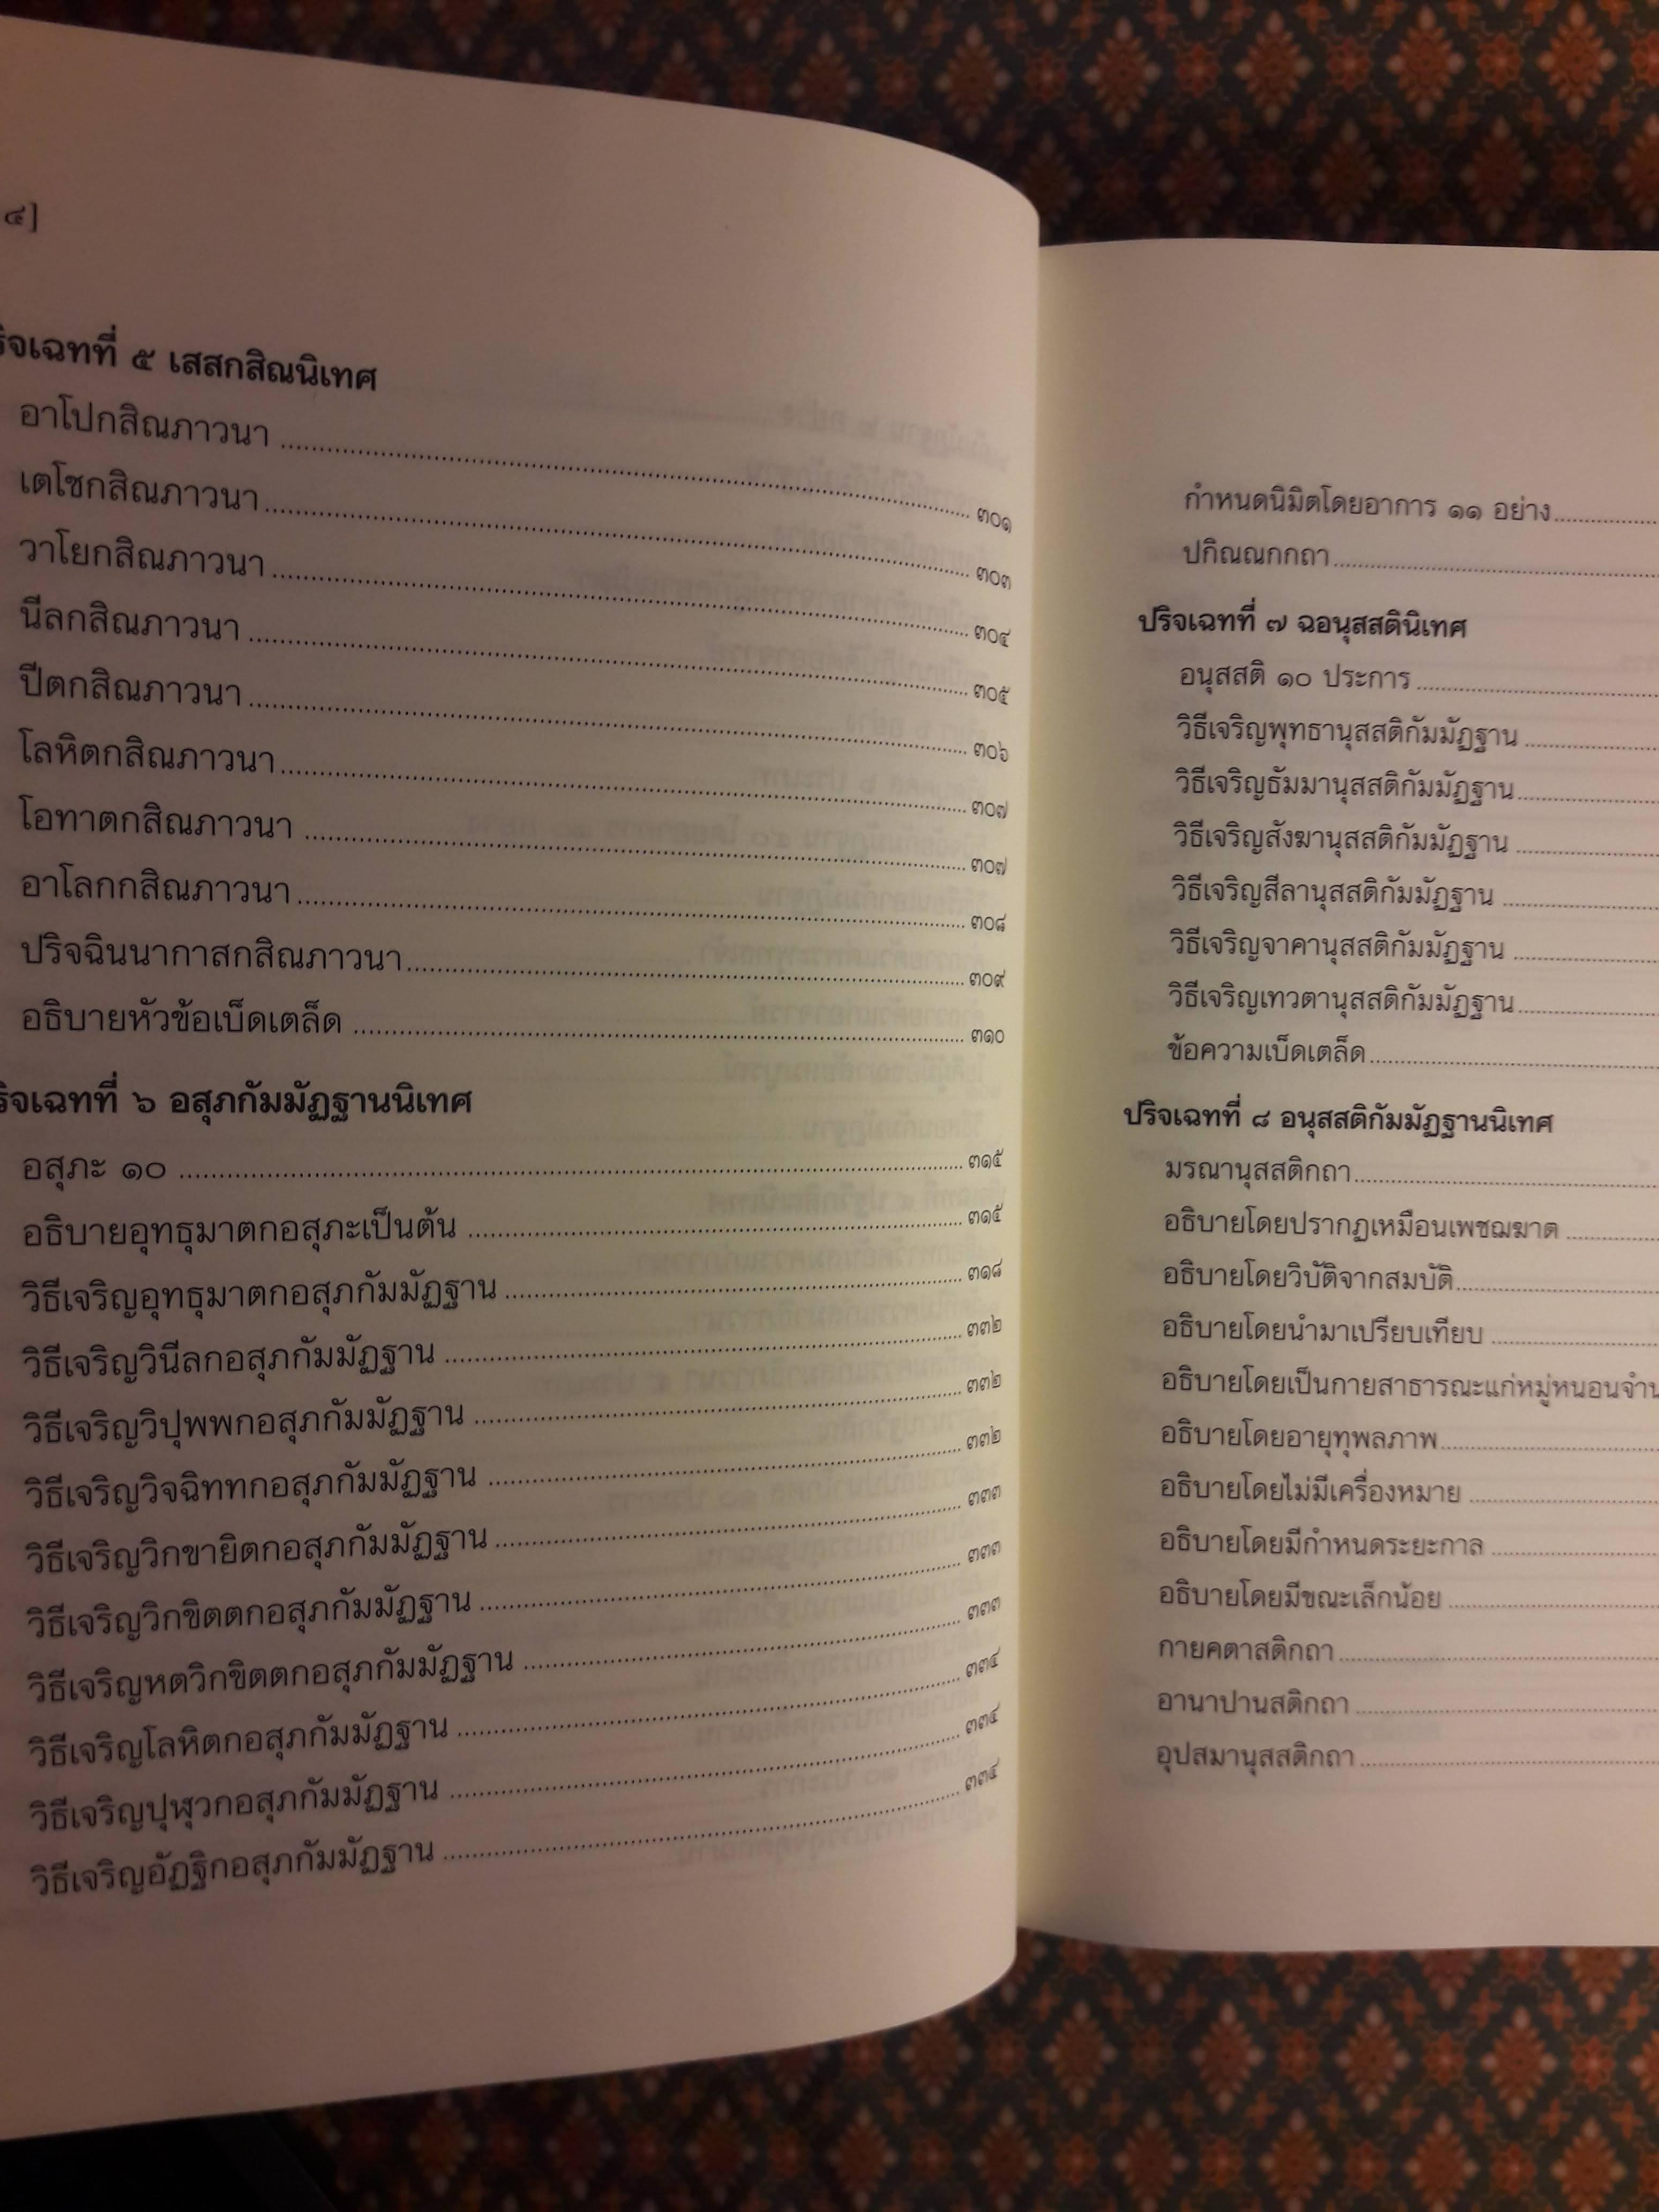 ๔]
ริจเฉทที่ ๕ เสสกสิณนิเทศ
อาโปกสิณภาวนา ........ ๓๐๑
เตโชกสิณภาวนา ........ ๓๐๓
วาโยกสิณภาวนา ........ ๓๐๔
นีลกสิณภาวนา ........ ๓๐๕
ปีตกสิณภาวนา ........ ๓๐๖
โลหิตกสิณภาวนา ........ ๓๐๗
โอทาตกสิณภาวนา ........ ๓๐๗
อาโลกกสิณภาวนา ........ ๓๐๘
ปริจฉินนากาสกสิณภาวนา ........ ๓๐๙
อธิบายหัวข้อเบ็ดเตล็ด ........ ๓๑๐
ริจเฉทที่ ๖ อสุภกัมมัฏฐานนิเทศ
อสุภะ ๑๐ ........ ๓๑๕
อธิบายอุทธุมาตกอสุภะเป็นต้น ........ ๓๑๕
วิธีเจริญอุทธุมาตกอสุภกัมมัฏฐาน ........ ๓๑๘
วิธีเจริญวินีลกอสุภกัมมัฏฐาน ........ ๓๓๒
วิธีเจริญวิปุพพกอสุภกัมมัฏฐาน ........ ๓๓๒
วิธีเจริญวิจฉิททกอสุภกัมมัฏฐาน ........ ๓๓๒
วิธีเจริญวิกขายิตกอสุภกัมมัฏฐาน ........ ๓๓๓
วิธีเจริญวิกขิตตกอสุภกัมมัฏฐาน ........ ๓๓๓
วิธีเจริญหตวิกขิตตกอสุภกัมมัฏฐาน ........ ๓๓๓
วิธีเจริญโลหิตกอสุภกัมมัฏฐาน ........ ๓๓๔
วิธีเจริญปุฬุวกอสุภกัมมัฏฐาน ........ ๓๓๔
วิธีเจริญอัฏฐิกอสุภกัมมัฏฐาน ........ ๓๓๔
กำหนดนิมิตโดยอาการ ๑๑ อย่าง ........
ปกิณณกกถา ........
ปริจเฉทที่ ๗ ฉอนุสสตินิเทศ
อนุสสติ ๑๐ ประการ ........
วิธีเจริญพุทธานุสสติกัมมัฏฐาน ........
วิธีเจริญธัมมานุสสติกัมมัฏฐาน ........
วิธีเจริญสังฆานุสสติกัมมัฏฐาน ........
วิธีเจริญสีลานุสสติกัมมัฏฐาน ........
วิธีเจริญจาคานุสสติกัมมัฏฐาน ........
วิธีเจริญเทวตานุสสติกัมมัฏฐาน ........
ข้อความเบ็ดเตล็ด ........
ปริจเฉทที่ ๘ อนุสสติกัมมัฏฐานนิเทศ
มรณานุสสติกถา ........
อธิบายโดยปรากฏเหมือนเพชฌฆาต ........
อธิบายโดยวิบัติจากสมบัติ ........
อธิบายโดยนำมาเปรียบเทียบ ........
อธิบายโดยเป็นกายสาธารณะแก่หมู่หนอนจำน
อธิบายโดยอายุทุพลภาพ ........
อธิบายโดยไม่มีเครื่องหมาย ........
อธิบายโดยมีกำหนดระยะกาล ........
อธิบายโดยมีขณะเล็กน้อย ........
กายคตาสติกถา ........
อานาปานสติกถา ........
อุปสมานุสสติกถา ........